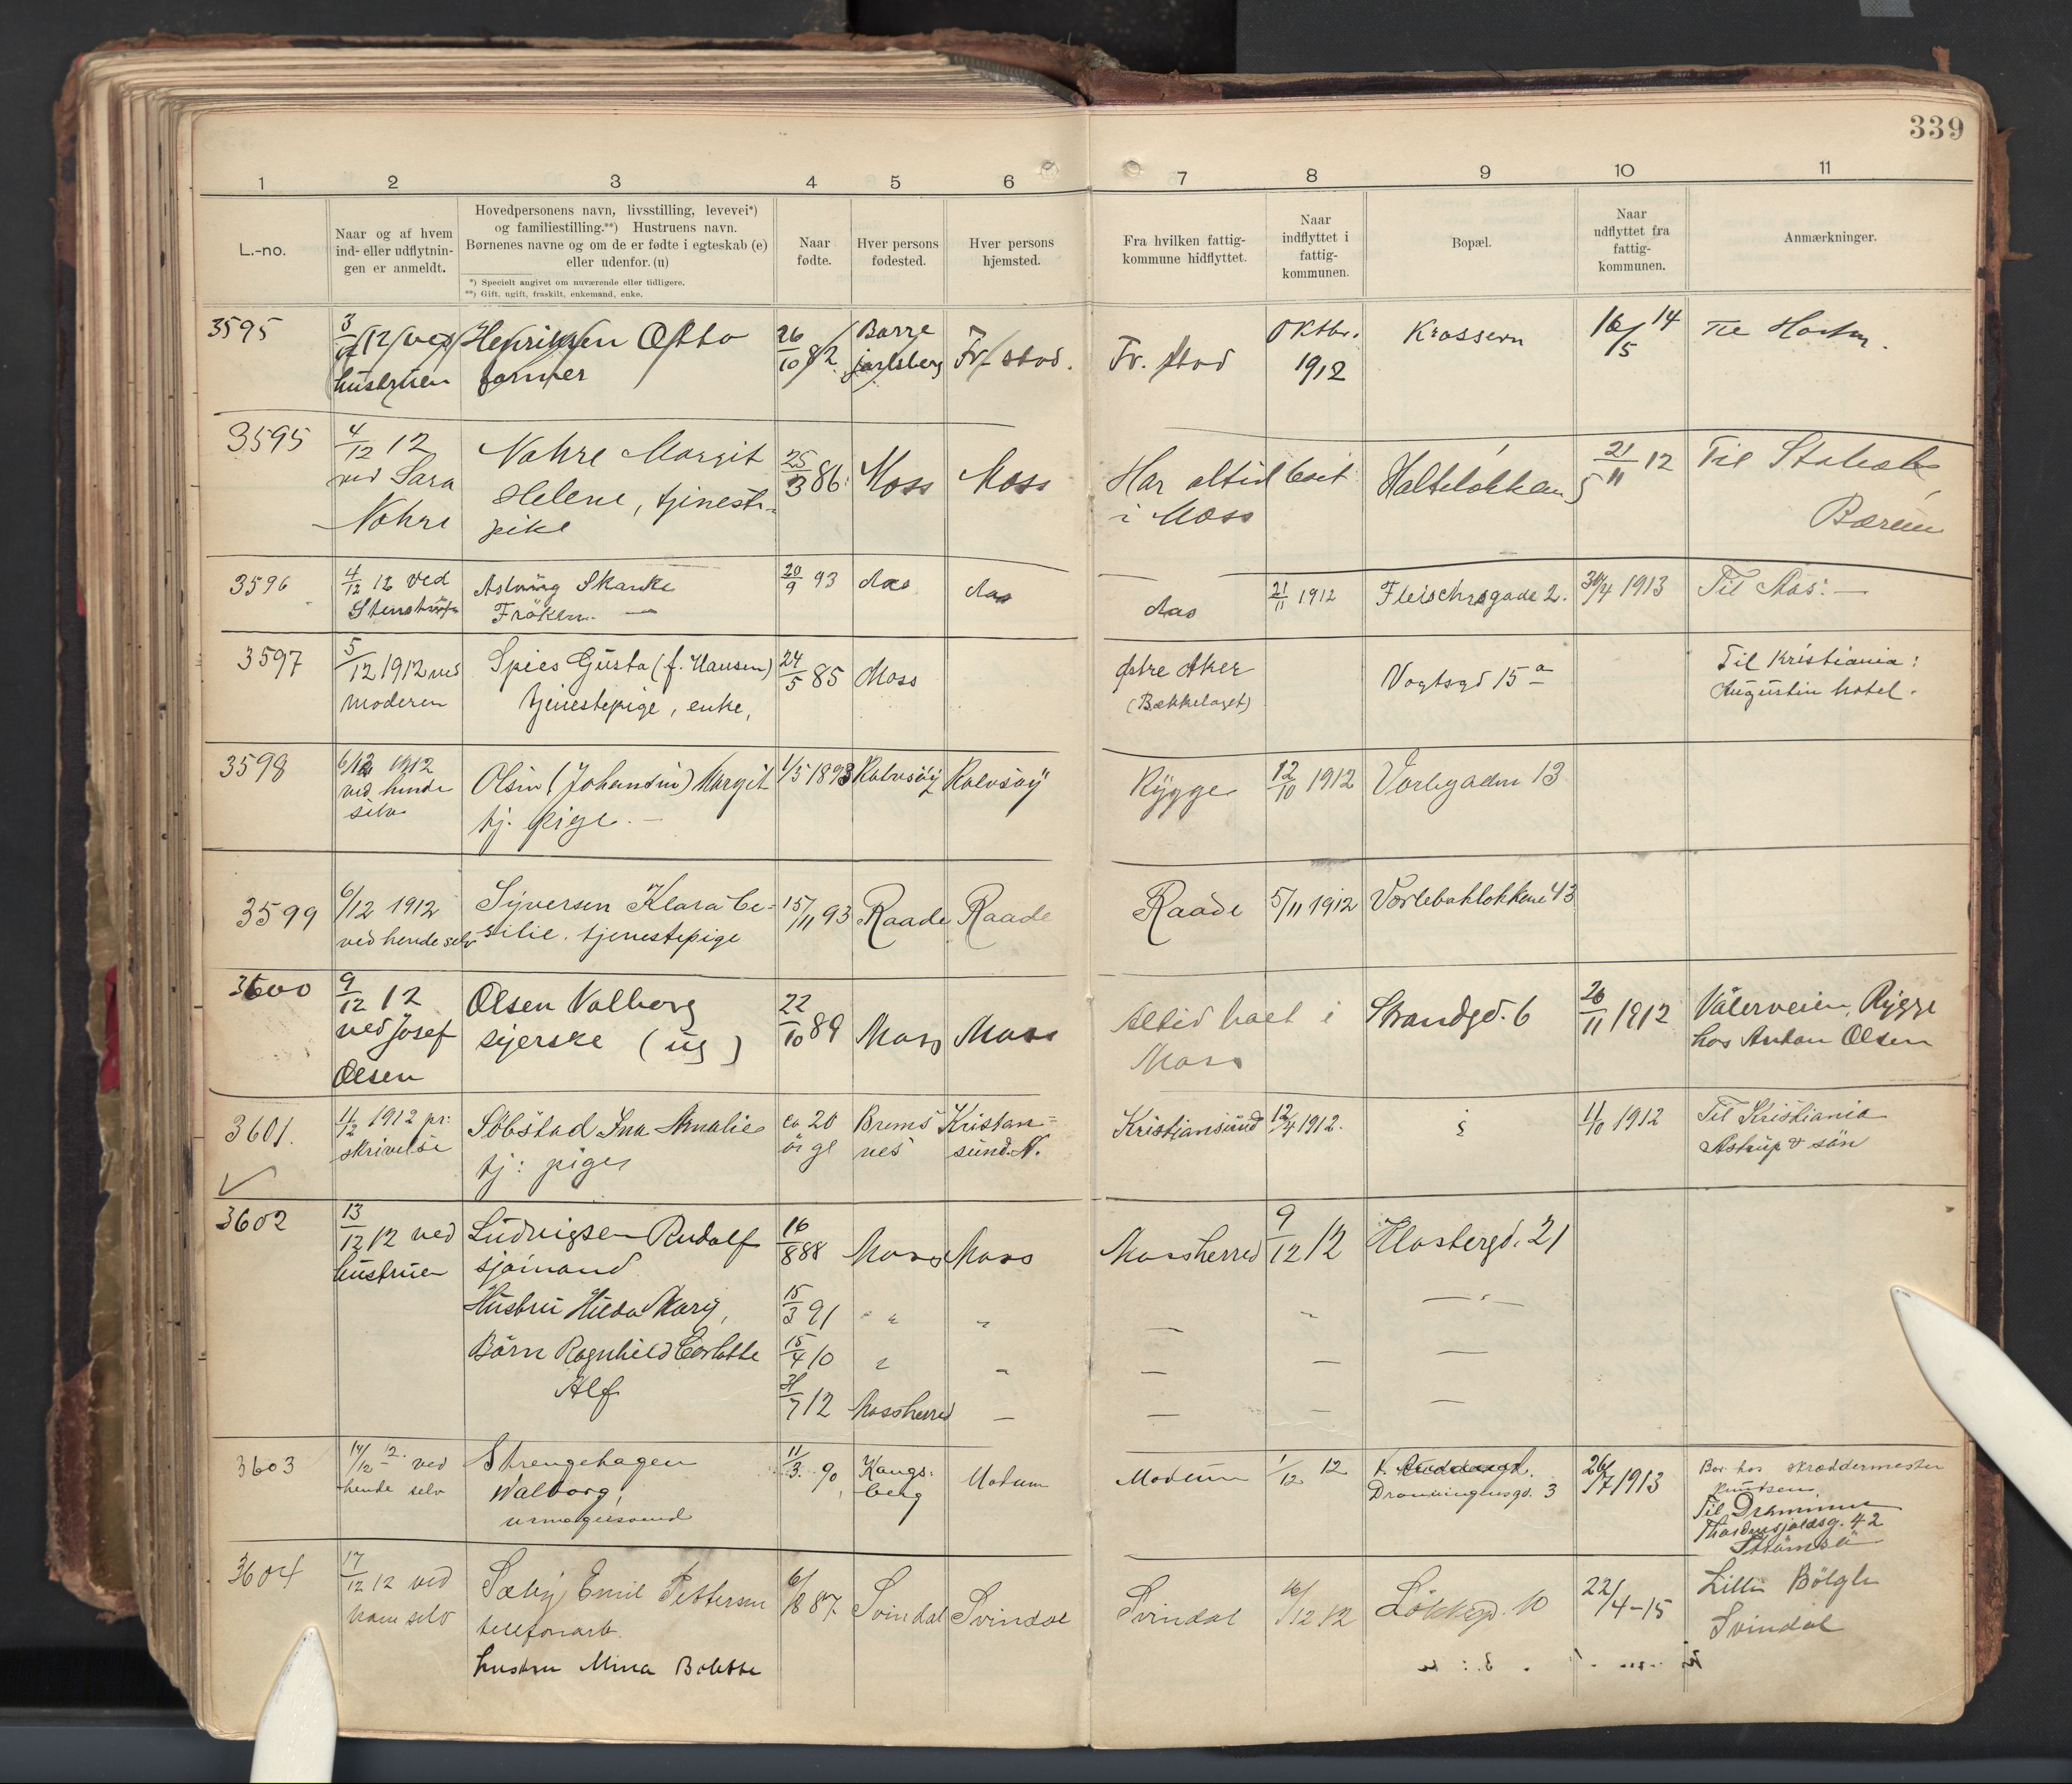 339
1 2 3 4 5 6 7 8 9 10 11
L.-no.
Naar og af hvem
ind- eller udflytnin-
gen er anmeldt.
Hovedpersonens navn, livsstilling, levevei*)
og familiestilling.**) Hustruens navn.
Børnenes navne og om de er fødte i egteskab (e)
eller udenfor. (u)
*) Specielt angivet om nuværende eller tidligere.
**) Gift, ugift, fraskilt, enkemand, enke.
Naar
fødte.
Hver persons
fødested.
Hver persons
hjemsted.
Fra hvilken fattig-
kommune hidflyttet.
Naar
indflyttet i
fattig-
kommunen.
Bopæl.
Naar
udflyttet fra
fattig-
kommunen.
Anmærkninger.
3595
12 ved
hustruen
Henriksen Otto
former
26/10 82
Borre
jarlsberg
Fr. stad.
Fr. stad
Oktbr.
1912
Krossern
16/5 14
Til
3595
4/12 12
ved Sara
Nohre
Nohre Margit
Helene, tjeneste-
pike
25/3 86
Moss
Moss
Har altid boet
i Moss
21/11 12
Til Stabæk
Bærum
3596
4/12 12 ved
Skanke
Frøken
20/9 93
Aas
Aas
Aas
21/11 1912
Fleischrsgade 2.
30/4 1913
Til Aas:
3597
5/12 1912 ved
moderen
Spies Gusta (f. Hansen)
tjenestepige, enke,
24/5 85
Moss
Østre Aker
(Bækkelaget)
Vogtsgd 15 a
Til Kristiania:
Augustin hotel.
3598
6/12 1912
ved hende
selv
Olsen (Johansen) Margit
tj. pige.
1/5 1893
Kalvsøy
Kalvsøy
Rygge
12/10 1912
Vorlegaden 13
3599
6/12 1912
ved hende selv
Syversen Klara Ce-
silie. tjenestepige
15/11 93
Raade
Raade
Raade
5/11 1912
Vorlebakløkkene 43
3600
9/12 12
ved Josef
Olsen
Olsen Valborg
syerske (ug)
22/10 89
Moss
Moss
Altid boet i
Moss
Strandgd. 6
26/11 1912
Vålerveien, Rygge
hos Anton Olsen
3601.
11/12 1912 pr:
skrivelse
Söbstad Ina Amalie
tj: pige
ca 20
år gl
Brems
nes
Kristian=
sund. N.
Kristiansund
12/4 1912.
?
11/10 1912
Til Kristiania
Astrup & sön
3602
13/12 12 ved
hustruen
Ludvigsen Rudolf
sjømand
16/8 88
Moss
Moss
Mossherred
9/12 12
Klostergd. 21
Hustru Hilda Mary,
15/3 91
Børn Ragnhild Carlotte
15/4 10
Alf
7 12
Mossherred
3603
14/12 12. ved
hende selv
Strengehagen
Walborg,
urmagersvend
11/3. 90
Kongs-
berg
Modum
Modum
1/12 12
Dronningensgd. 3
26/7 1913
Bor hos skræddermester
Knutsen
Til Drammen
Thordensjoldsg. 42
Strömsö
3604
17/12 12 ved
ham selv
Sæby Emil Pettersen
telefonarb.
hustru Mina Bolette
6/8 87.
Svindal
Svindal
Svindal
16/12 12
Løkkegd. 10
22/4-15
Lille Bölgle
Svindal